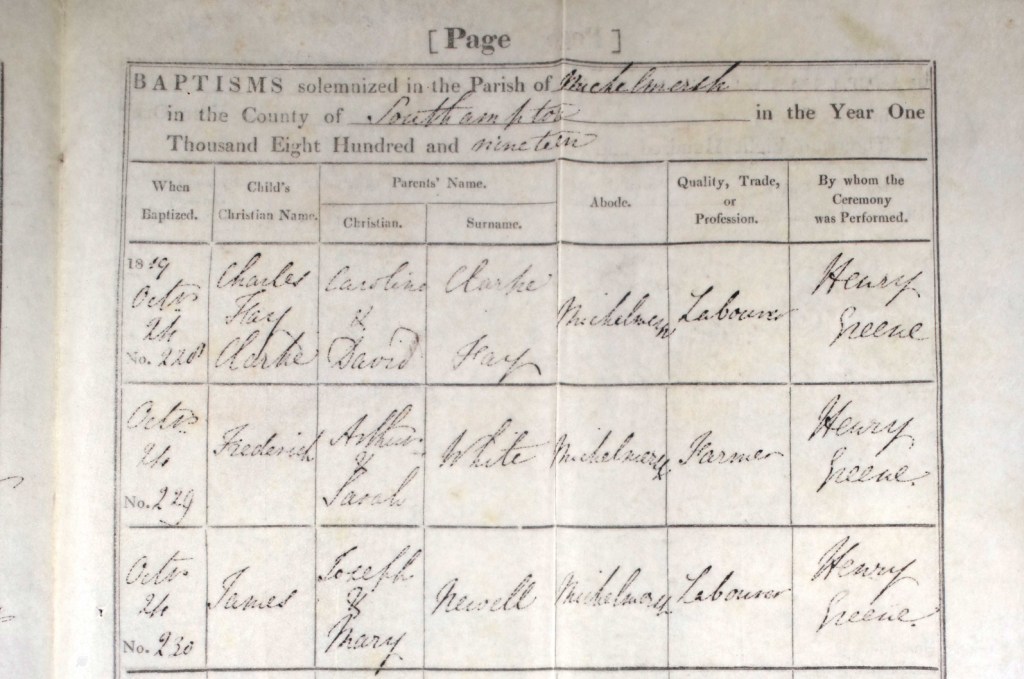 [ Page ]
BAPTISMS solemnized in the Parish of Michelmersh
in the County of Southampton in the Year One
Thousand Eight Hundred and nineteen
When Baptized. Child's Christian Name. Parents' Name. Christian. Surname. Abode. Quality, Trade, or Profession. By whom the Ceremony was Performed.
1819
Octr
24
No. 228
Charles
Hay
Clarke
Caroline
&
David
Clarke
Hay
Michelmersh
Labourer
Henry
Greene
Octr
24
No. 229
Frederick
Arthur
&
Sarah
White
Michelmersh
Farmer
Henry
Greene.
Octr
24
No. 230
James
Joseph
&
Mary
Newell
Michelmersh
Labourer
Henry
Greene.